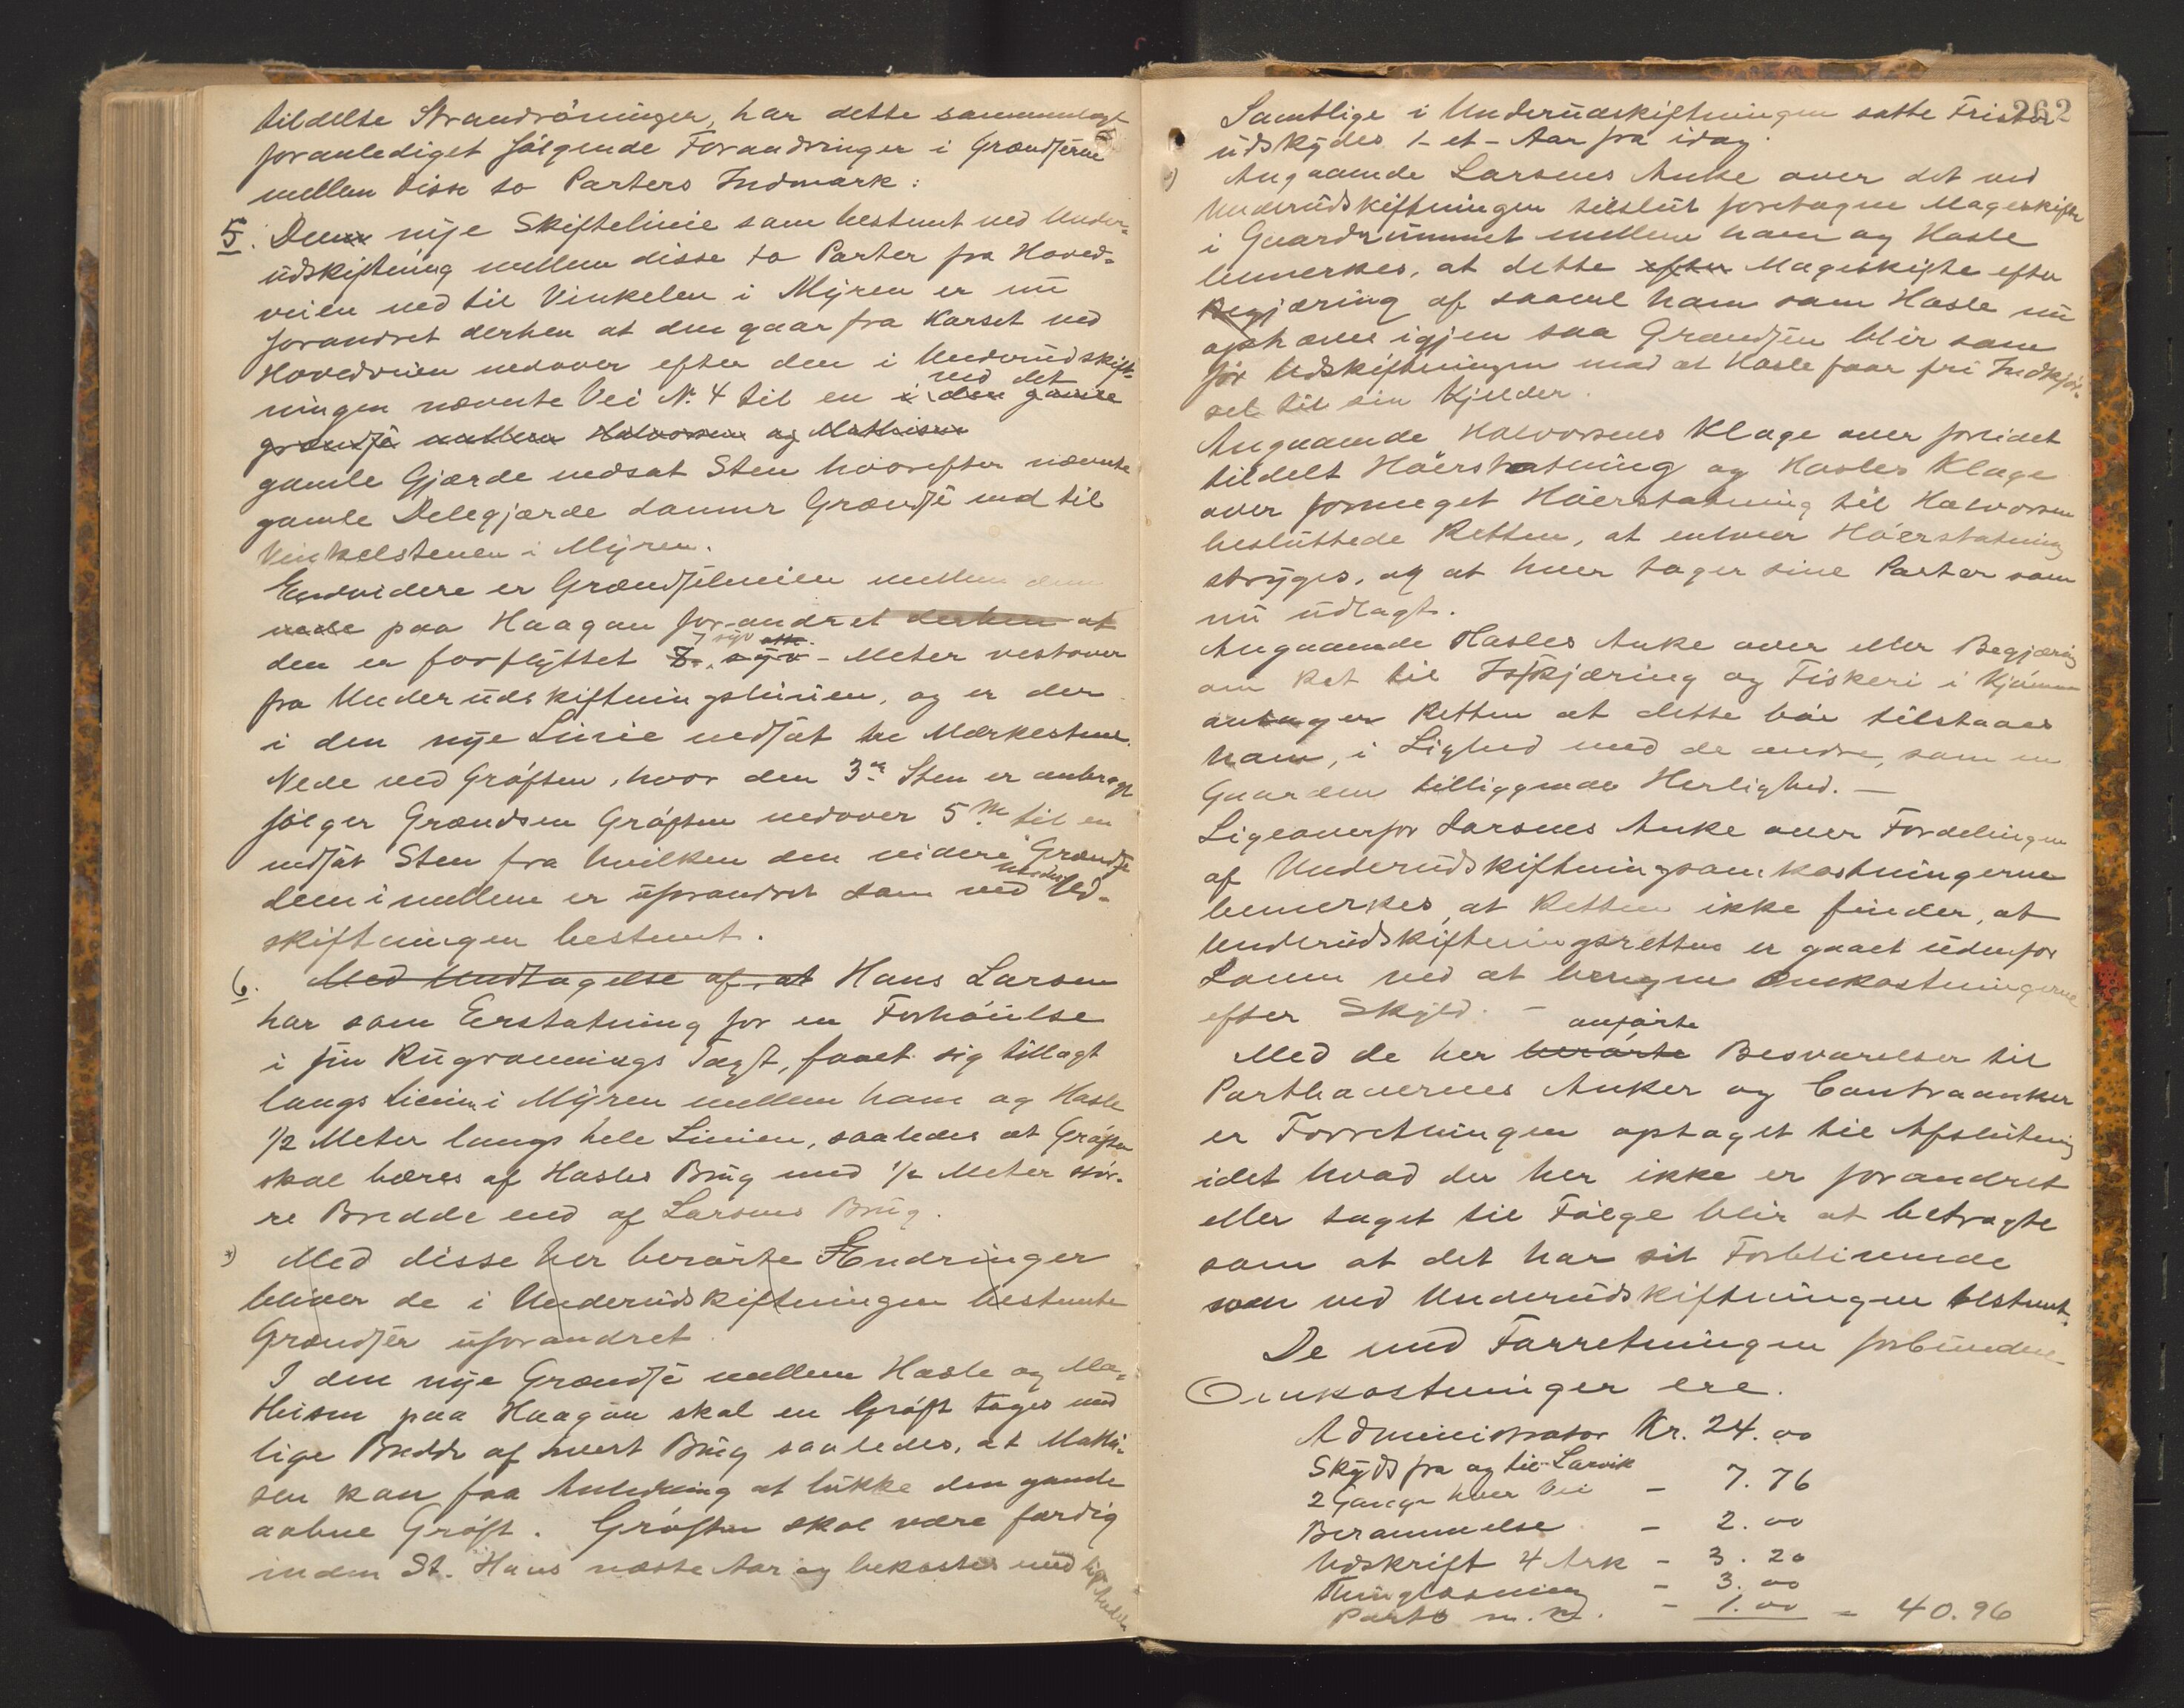 tildelte Strandröninger, har dette sammenlagt
foranlediget følgende Forandringer i Grændserne
mellem disse to Parters Indmark:
5. Denne nye Skiftelinie som bestemt ved Under-
udskiftning mellem disse to Parter fra Hoved-
veien ned til Vinkelen i Myren er nu
forandret derhen at den gaar fra Karset ved
Hovedveien nedover efter den i Underudskift-
ningen nævnte Vei N. 4 til en i den ved det gamle
grændse mellem Halvorsen og Mathisen
gamle Gjærde nedsat Sten hvorefter nævnte
gamle Delegjærde danner Grændse ned til
Vinkelstenen i Myren.
Endvidere er Grændselinien mellem dem
nede paa Haagan forandret derhen at
den er forflyttet 7 syv - Meter vestover
fra Underudskiftningslinien, og er der
i den nye Linie nedsat tre Merkestene.
Nede ved Grøften, hvor den 3die Sten er anbragt
følger Grændsen Grøften nedover 5 m til en
nedsat Sten fra hvilken den videre Grændse
dem imellem er uforandret som ved Ud-
skiftningen bestemt.
6. Med Undtagelse af, at Hans Larsen
har som Erstatning for en Forhöielse
i sin Rugvonnings Taxt, faaet sig tillagt
langs Linien i Myren mellem ham og Hasle
1/2 Meter langs hele Linien, saaledes at Grøften
skal bæres af Hasles Brug med 1/2 Meter stør-
re Bredde end af Larsens Brug.
*) Med disse her berørte Ændringer
bliver de i Underudskiftningen bestemte
Grændser uforandret.
I den nye Grændse mellem Hasle og Ma-
thisen paa Haagan skal en Grøft tages med
lige Bredde af hvert Brug saaledes, at Mathi-
sen kan faa Anledning at lukke den gamle
aabne Grøft. Grøften skal være færdig
inden St. Hans næste Aar og bekostes med lige Andele
262
Samtlige i Underudskiftningen satte Frister
udskydes 1 - et - Aar fra idag.
*) Angaaende Larsens Anke over det ved
Underudskiftningen tilslut foretagne Mageskifte
i Gaardsrummet mellem ham og Hasle
bemerkes, at dette efter Mageskifte efter
Begjæring af saavel ham som Hasle nu
ophæves igjen saa Grændsen blir som
før Udskiftningen med at Hasle faar fri Indkjør-
sel til sin Kjelder.
Angaaende Halvorsens Klage over forlidet
tildelt Höerstatning og Hasles Klage
over formeget Höerstatning til Halvorsen
besluttede Retten, at enhver Höerstatning
stryges, og at hver tager sine Parter som
nu udlagt.
Angaaende Hasles Anke over eller Begjæring
om Ret til Isskjæring og Fiskeri i
antager Retten at dette bør tilstaaes
ham, i Lighed med de andre, som en
Gaarden tilliggende Herlighed. -
Ligeoverfor Larsens Anke over Fordelingen
af Underudskiftningsomkostningerne
bemerkes, at Retten ikke finder, at
Underudskiftningsretten er gaaet udenfor
Loven ved at beregne Omkostningerne
efter Skyld. -
Med de her berørte anførte Besvarelser til
Parthavernes Anker og Contraanker
er Forretningen optaget til Afslutning
idet hvad der her ikke er forandret
eller taget til Følge blir at betragte
som at det har sit Forblivende
som ved Underudskiftningen bestemt.
De med Forretningen forbundne
Omkostninger ere.
Administrator Kr. 24.00
Skyds fra og til Larvik
2 Gange hver Vei - 7.76
Berammelse - 2.00
Udskrift 4 Ark - 3.20
Thinglæsning - 3.00
Porto m. v. - 1.00 = 40.96